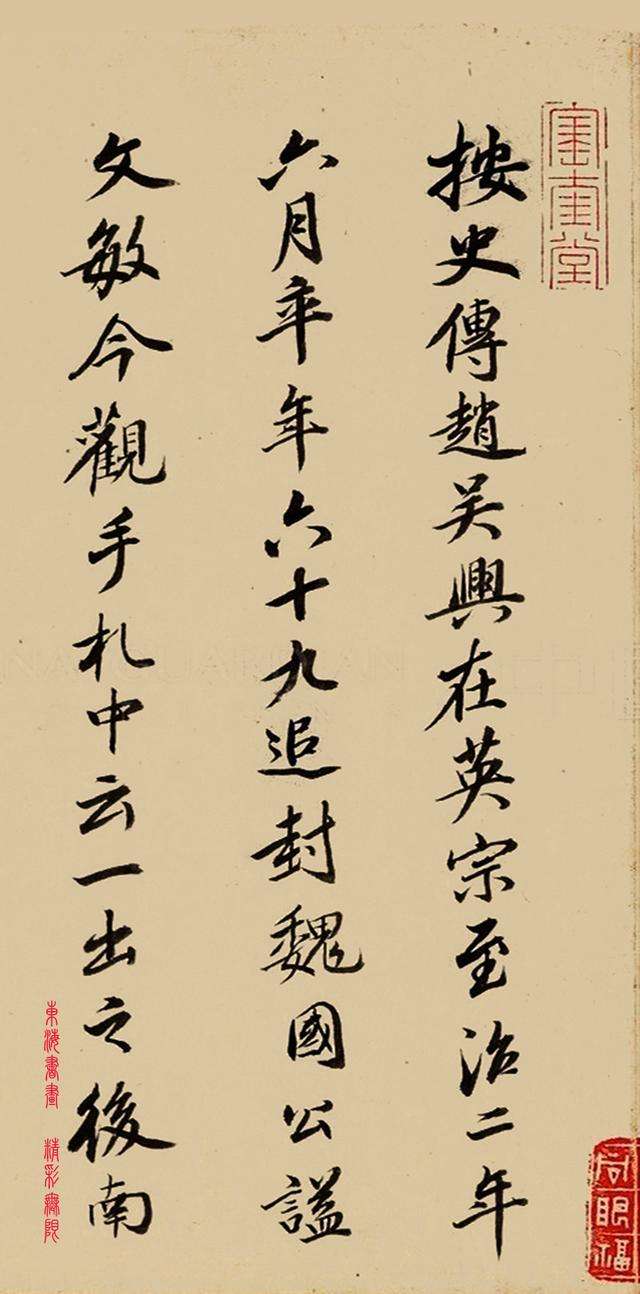 按史傳趙吳興在英宗至治二年
六月卒年六十九追封魏國公謚
文敏今觀手札中云一出之後南
東海書畫 精彩無限